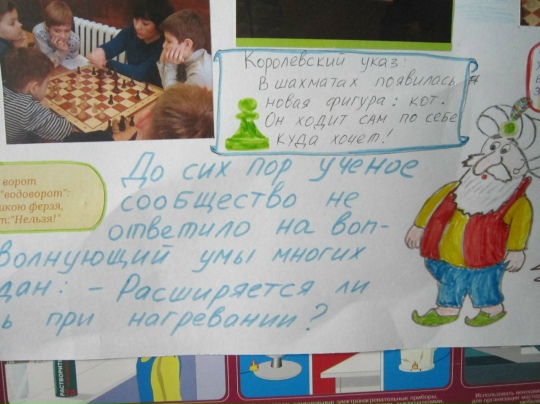 Королевский указ:
В шахматах появилась
новая фигура: кот.
Он ходит сам по себе
куда хочет!
ворот
"водоворот":
ферзя,
"Нельзя!"
До сих пор ученое
сообщество не
ответило на воп-
волнующий умы многих
дан: - Расширяется ли
ь при нагревании?
РАСТВОРИТ
электронагревательные приборы,
Использовать